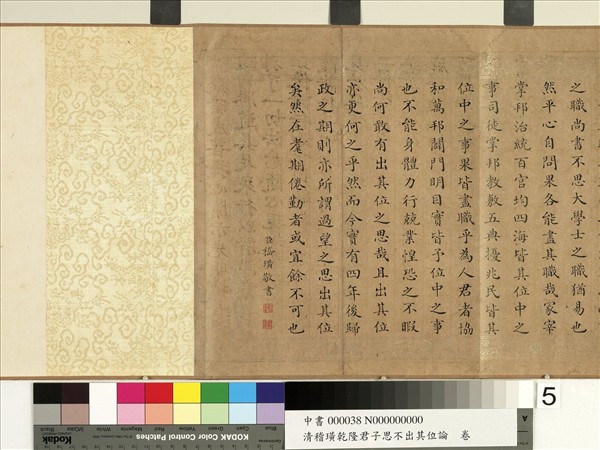 之職尚書不思大學士之職猶易也
然平心自問果各能盡其職哉冢宰
掌邦治統百官均四海皆其位中之
事司徒掌邦教敷五典擾兆民皆其
位中之事果皆盡職乎為人君者協
和萬邦闢門明目實皆予位中之事
也不能身體力行兢業惶恐之不暇
尚何敢有出其位之思哉且出其位
亦更何之乎然而今實有四年後歸
政之期則亦所謂過望之思出其位
矣然在耄期倦勤者或宜餘不可也
臣嵇璜敬書
5
Blue
Cyan
Green
Yellow
Red
Magenta
White
Black
KODAK Color Control Patches
Kodak
A
中書 000038 N000000000
清嵇璜乾隆君子思不出其位論 卷